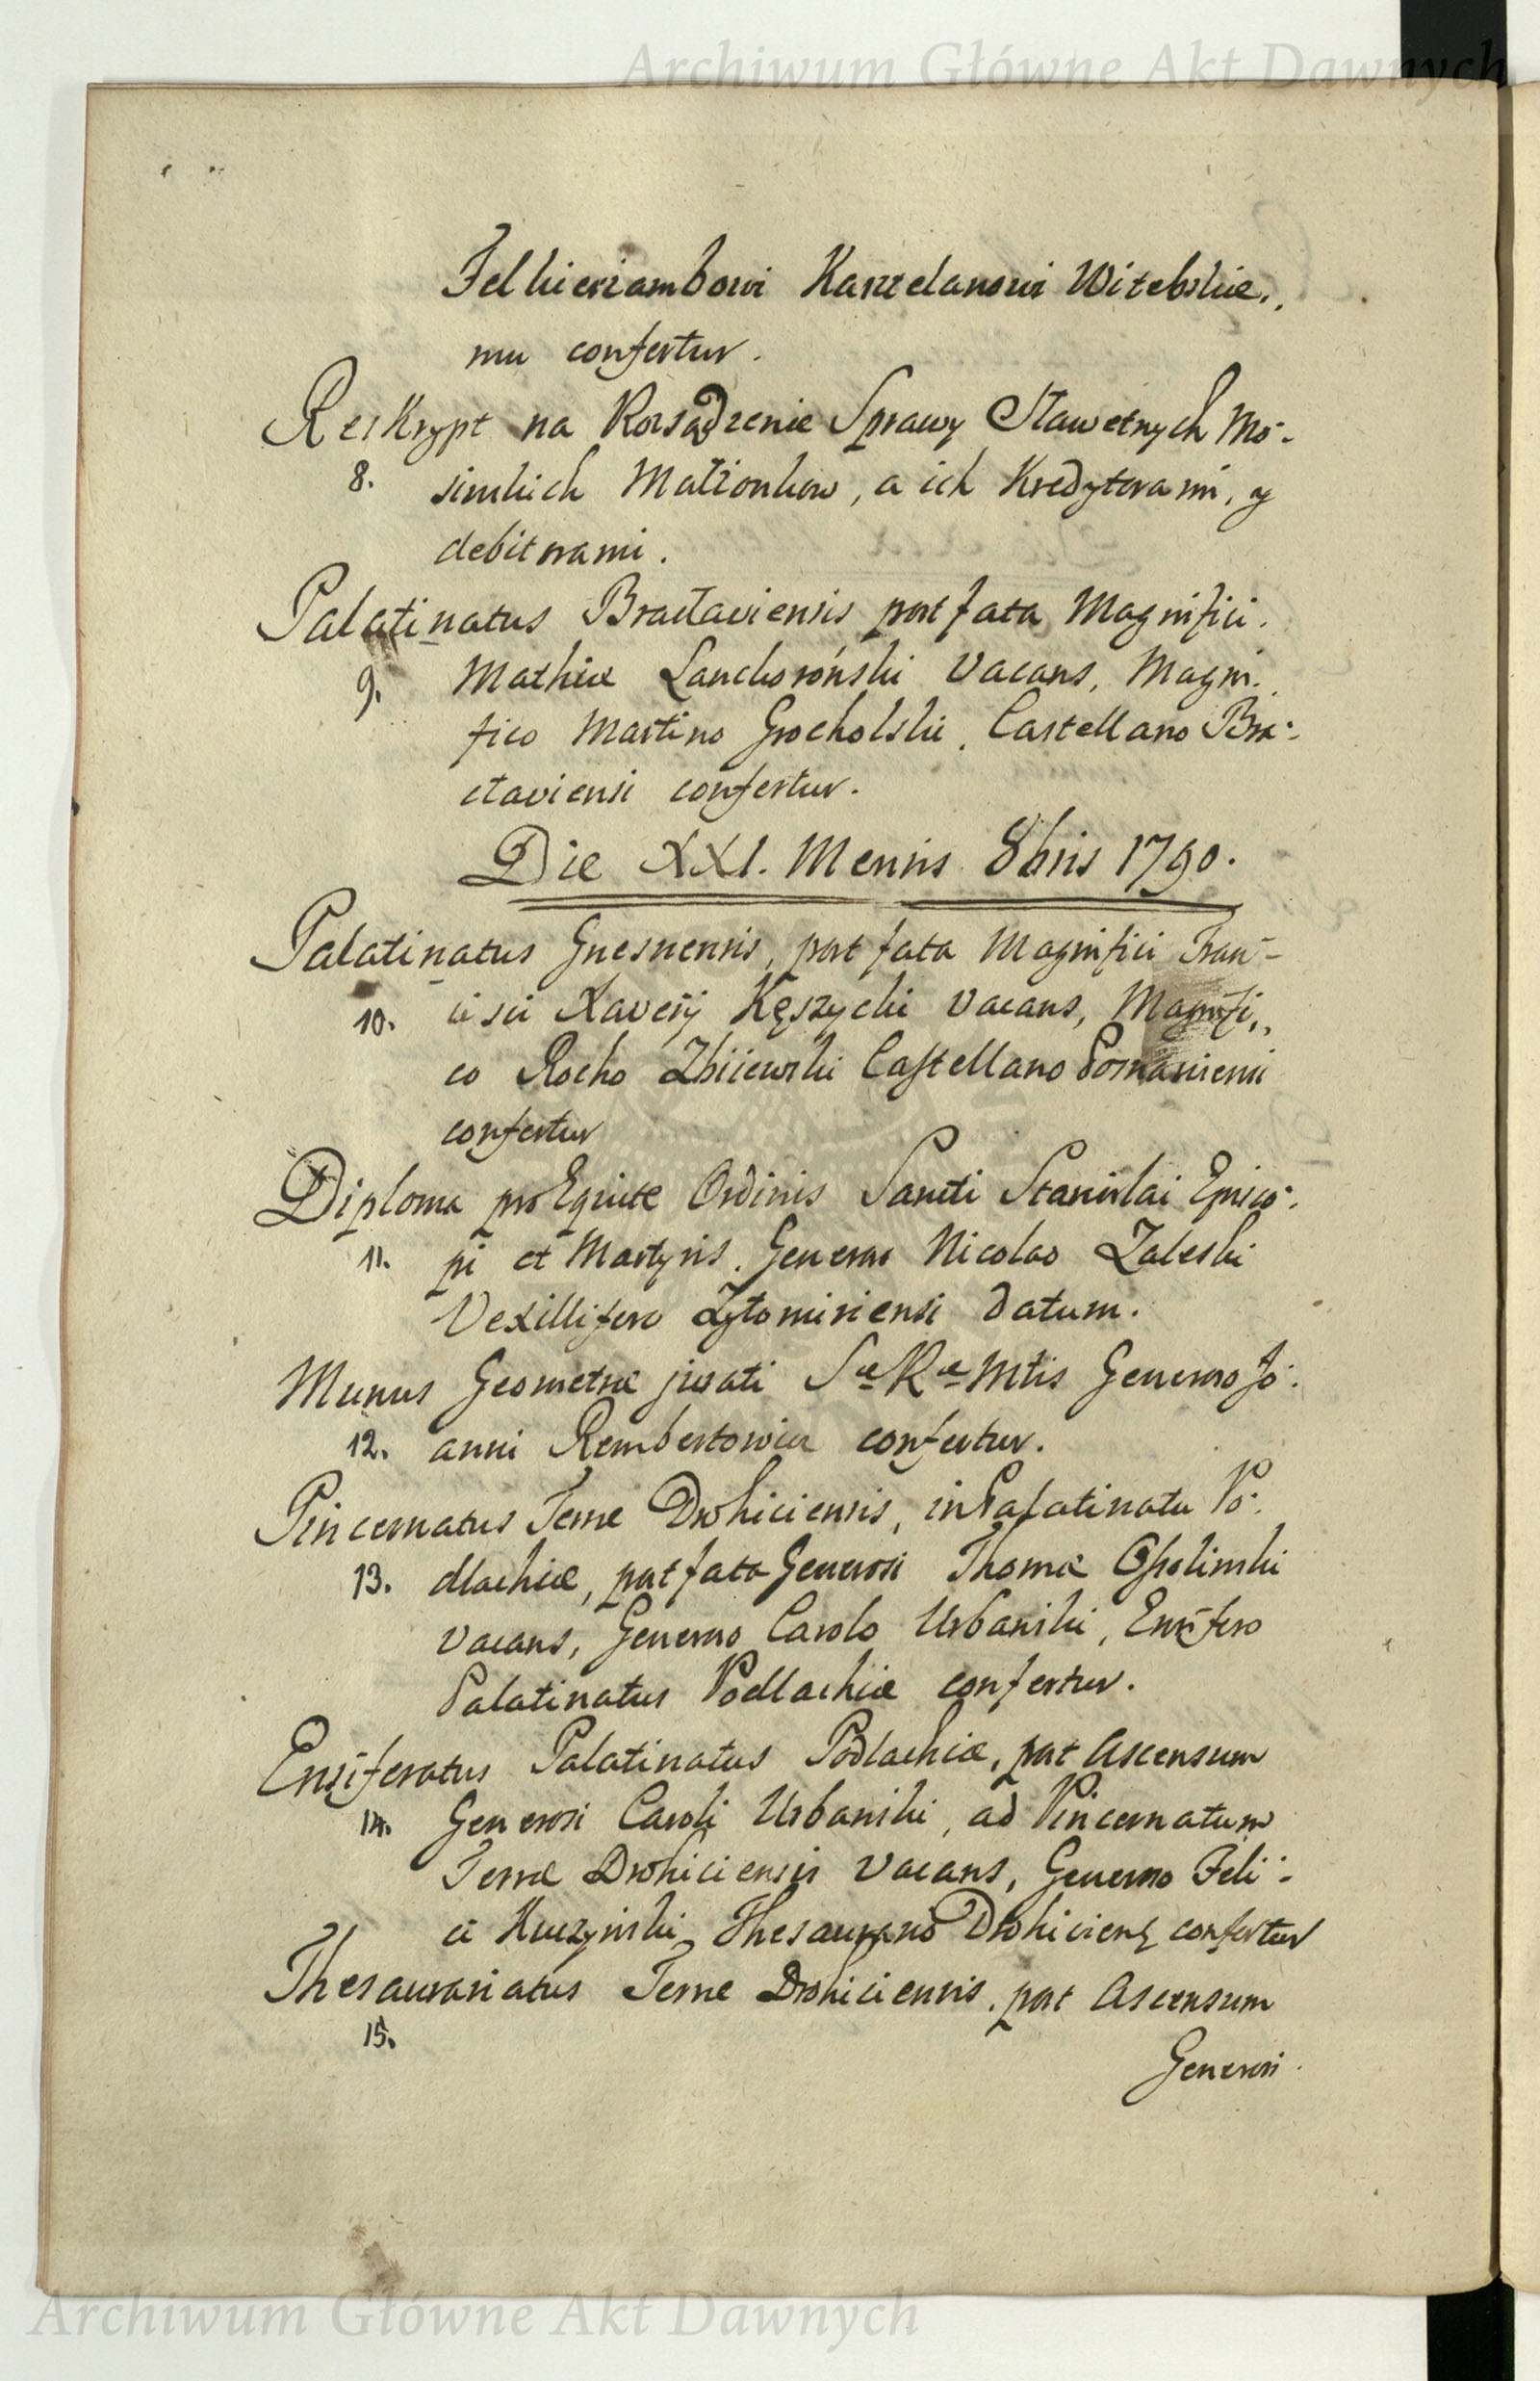 Archiwum Główne Akt Dawnych
Felkierzambowi Kasztelanowi Witebskie„
mu confertur.
Reskrypt na Rozsądzenie Sprawy Sławetnych Mo-
8. sinskich Małżonkow, a ich Kredytorami, y
debitorami.
Palatinatus Bracłaviensis, post fata Magnifici
9. Mathiæ Lanckoroński Vacans, Magni-
fico Martino Grocholski, Castellano Bra-
cłaviensi confertur.
Die XXI. Mensis 8bris 1790.
Palatinatus Gnesnensis, post fata Magnifici Fran-
10. cisci Xaverij Kęszycki Vacans, Magnifi„
co Rocho Zbijewski Castellano Posnaniensi
confertur
Diploma pro Equite Ordinis Sancti Stanislai Episco-
11. pi et Martyris, Generoso Nicolao Zaleski
Vexillifero Zytomiriensi datum.
Munus Geometræ jurati Sæ Ræ Mtis Generoso Jo-
12. anni Rembertowicz confertur.
Pincernatus Terræ Drohiciensis, in Palatinatu Po-
13. dlachiæ, post fata Generosi Thomæ Ossolinski
vacans, Generoso Carolo Urbanski, Ensifero
Palatinatus Podlachiæ confertur.
Ensiferatus Palatinatus Podlachiæ, post Ascensum
14. Generosi Caroli Urbanski, ad Pincernatum
Terræ Drohiciensis Vacans, Generoso Feli-
ci Kuczynski, Thesaurario Drohiciens confertur
Thesaurariatus Terræ Drohiciensis, post Ascensum
15.
Generosi
Archiwum Główne Akt Dawnych